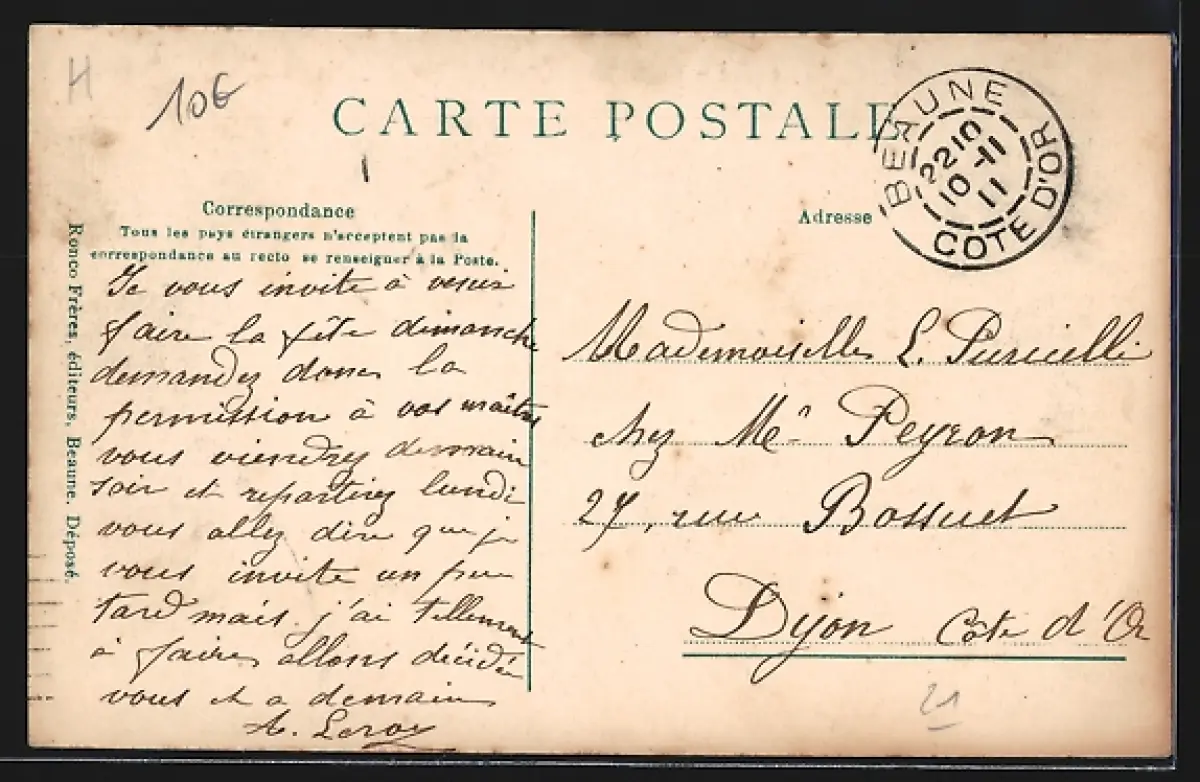 H
10€
CARTE POSTALE
BEAUNE
22 10
10 -11
11
COTE D'OR
Correspondance
Tous les pays étrangers n'acceptent pas la
correspondance au recto se renseigner à la Poste.
Adresse
Ronco Frères, éditeurs, Beaune. Déposé.
Je vous invite à venir
faire la fête dimanche
demandez donc la
permission à vos maîtres
vous viendrez demain
soir et repartirez lundi
vous allez dire que je
vous invite un peu
tard mais j'ai tellement
à faire, allons décidé
vous et a demain
A. Leroy
Mademoiselle L.
chez Mr Peyron
27, rue Bossuet
Dijon Côte d'Or
21